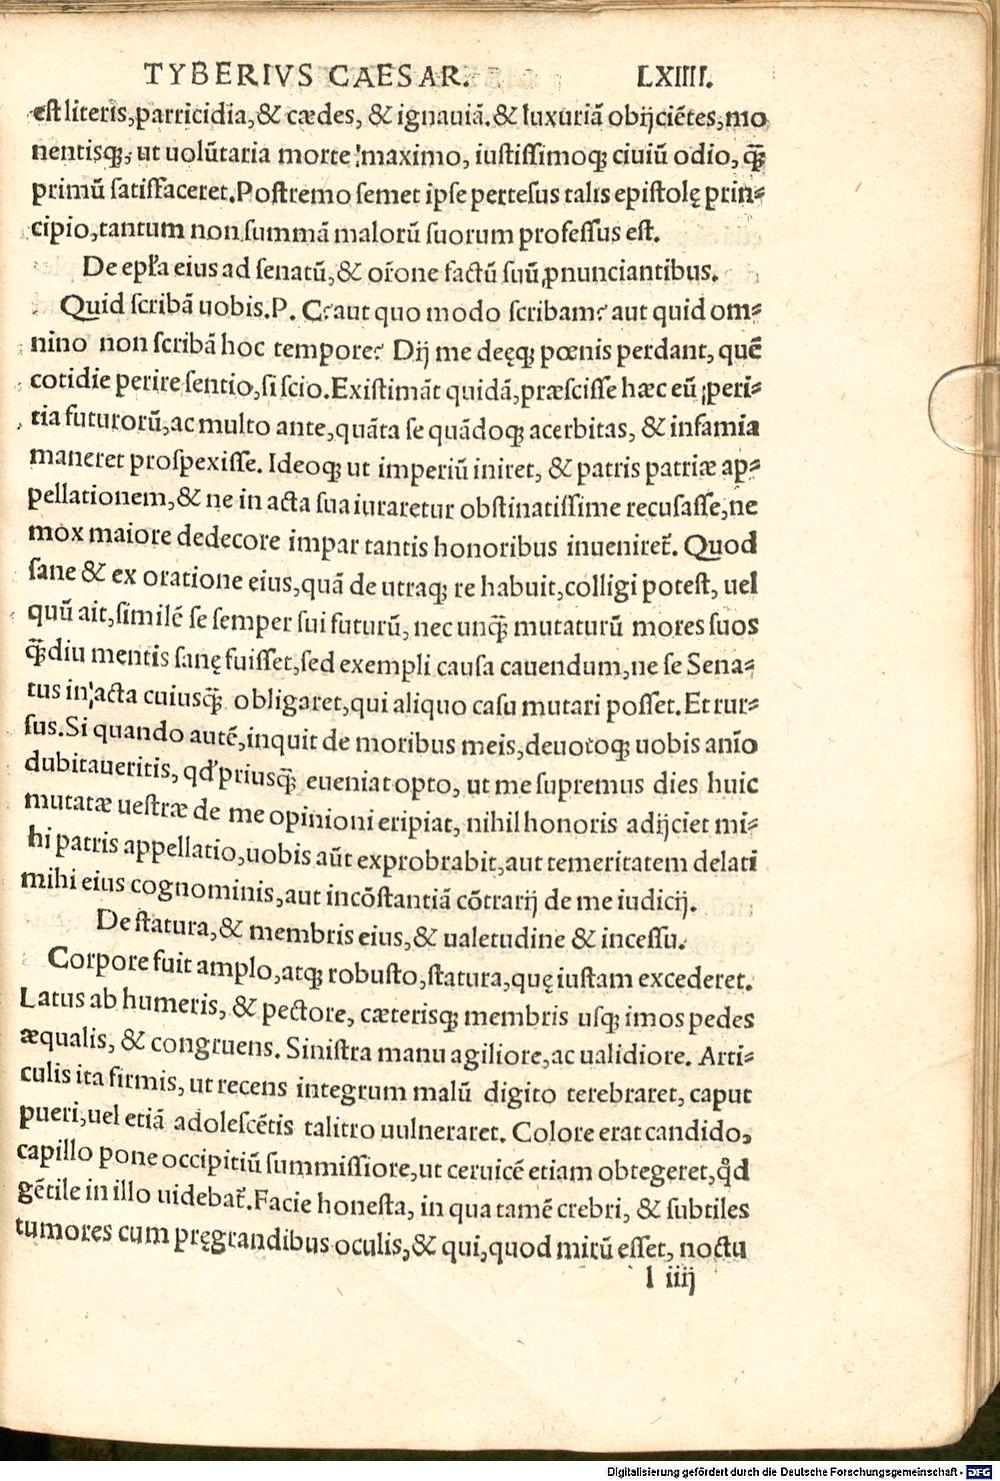 TYBERIVS CAESAR. LXIIII.
est literis,parricidia,& cædes, & ignauiã.& luxuriã obijciẽtes,mo
nentisq;, ut uolũtaria morte maximo, iustissimoq; ciuiũ odio, q̃;
primũ satisfaceret.Postremo semet ipse pertesus talis epistolę prin-
cipio,tantum non summã malorũ suorum professus est.
De epľa eius ad senatũ,& oŕone factũ suũ ꝓnunciantibus.
Quid scribã uobis.P. C? aut quo modo scribam? aut quid om-
nino non scribã hoc tempore? Dij me deęq; pœnis perdant, quẽ
cotidie perire sentio,si scio.Existimãt quidã,præscisse hæc eũ peri-
tia futurorũ,ac multo ante,quãta se quãdoq; acerbitas, & infamia
maneret prospexisse. Ideoq; ut imperiũ iniret, & patris patriæ ap-
pellationem,& ne in acta sua iuraretur obstinatissime recusasse,ne
mox maiore dedecore impar tantis honoribus inueniret̃. Quod
sane & ex oratione eius,quã de utraq; re habuit,colligi potest, uel
quũ ait,similẽ se semper sui futurũ, nec unq̃; mutaturũ mores suos
q̃;diu mentis sanę fuisset,sed exempli causa cauendum,ne se Sena-
tus in acta cuiusq̃; obligaret,qui aliquo casu mutari posset.Et rur-
sus.Si quando autẽ,inquit de moribus meis,deuotoq; uobis anĩo
dubitaueritis, qď priusq̃; eueniat opto, ut me supremus dies huic
mutatæ uestræ de me opinioni eripiat, nihil honoris adijciet mi-
hi patris appellatio,uobis aũt exprobrabit,aut temeritatem delati
mihi eius cognominis,aut incõstantiã cõtrarij de me iudicij.
De statura,& membris eius,& ualetudine & incessu.
Corpore fuit amplo,atq; robusto,statura,quę iustam excederet.
Latus ab humeris, & pectore, cæterisq; membris usq; imos pedes
æqualis, & congruens. Sinistra manu agiliore,ac ualidiore. Arti-
culis ita firmis, ut recens integrum malũ digito terebraret, caput
pueri,uel etiã adolescẽtis talitro uulneraret. Colore erat candido,
capillo pone occipitiũ summissiore,ut ceruicẽ etiam obtegeret,qͦd
gẽtile in illo uidebat̃.Facie honesta, in qua tamẽ crebri, & subtiles
tumores cum pręgrandibus oculis,& qui,quod mirũ esset, noctu
l iiij
Digitalisierung gefördert durch die Deutsche Forschungsgemeinschaft - DFG